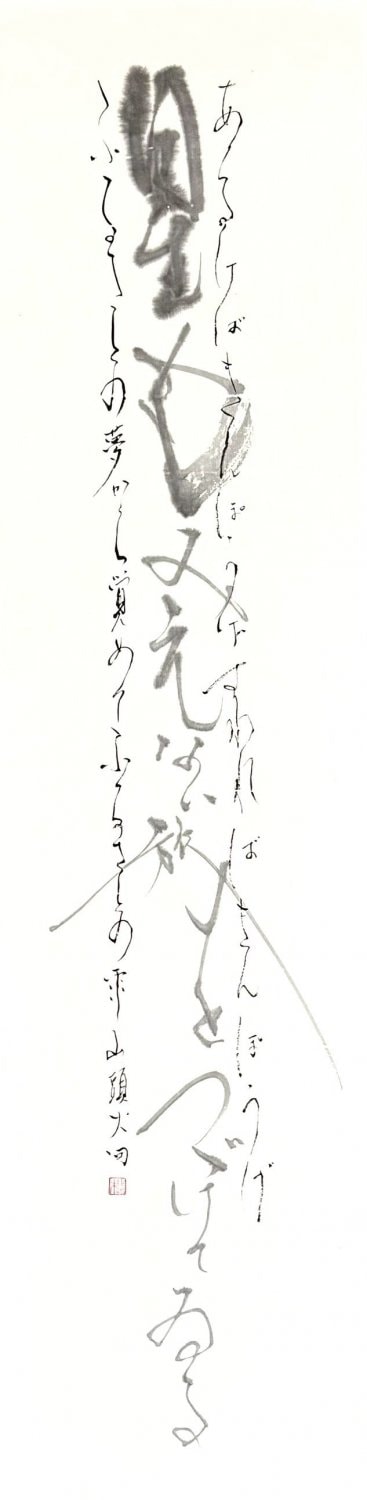 あるけばきんぽうげすわればきんぽうげ
星もみえない旅をつづけてゐる
ふるさとの夢から覚めてふるさとの雨 山頭火句